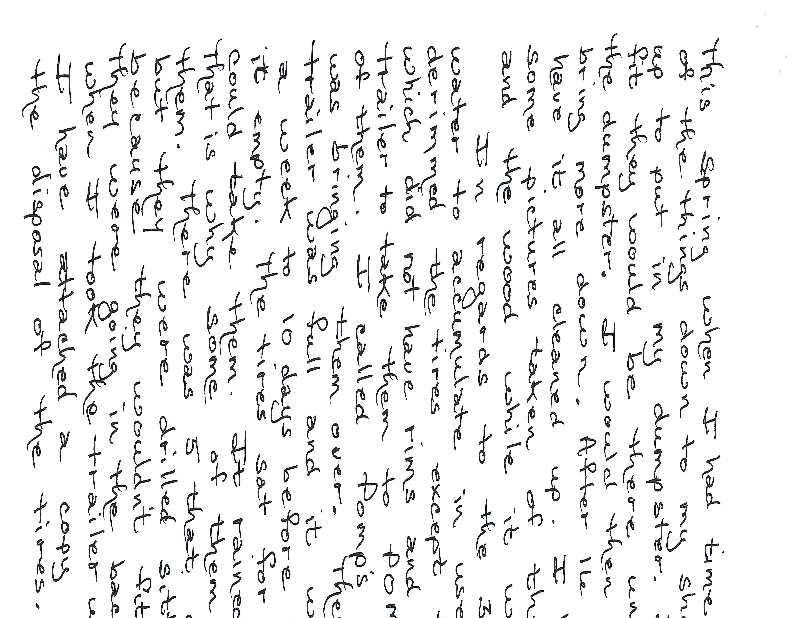 This Spring when I had time
of the things down to my sh
up to put in my dumpster.
fit they would be there un
the dumpster. I would then
bring more down. After 16
have it all cleaned up. I
some pictures taken of th
and the wood while it w
In regards to the 3
water to accumulate in use
derimmed the tires except
which did not have rims and
trailer to take them to Pom
of them. I called Pomp's
was bringing them over. The
trailer was full and it w
a week to 10 days before
it empty. The tires sat for
could take them. It rained
that is why some of them
them. There was 5 that
but they were drilled sit
because they wouldn't fit
they were going in the bac
when I took the trailer w
I have attached a copy
the disposal of the tires.